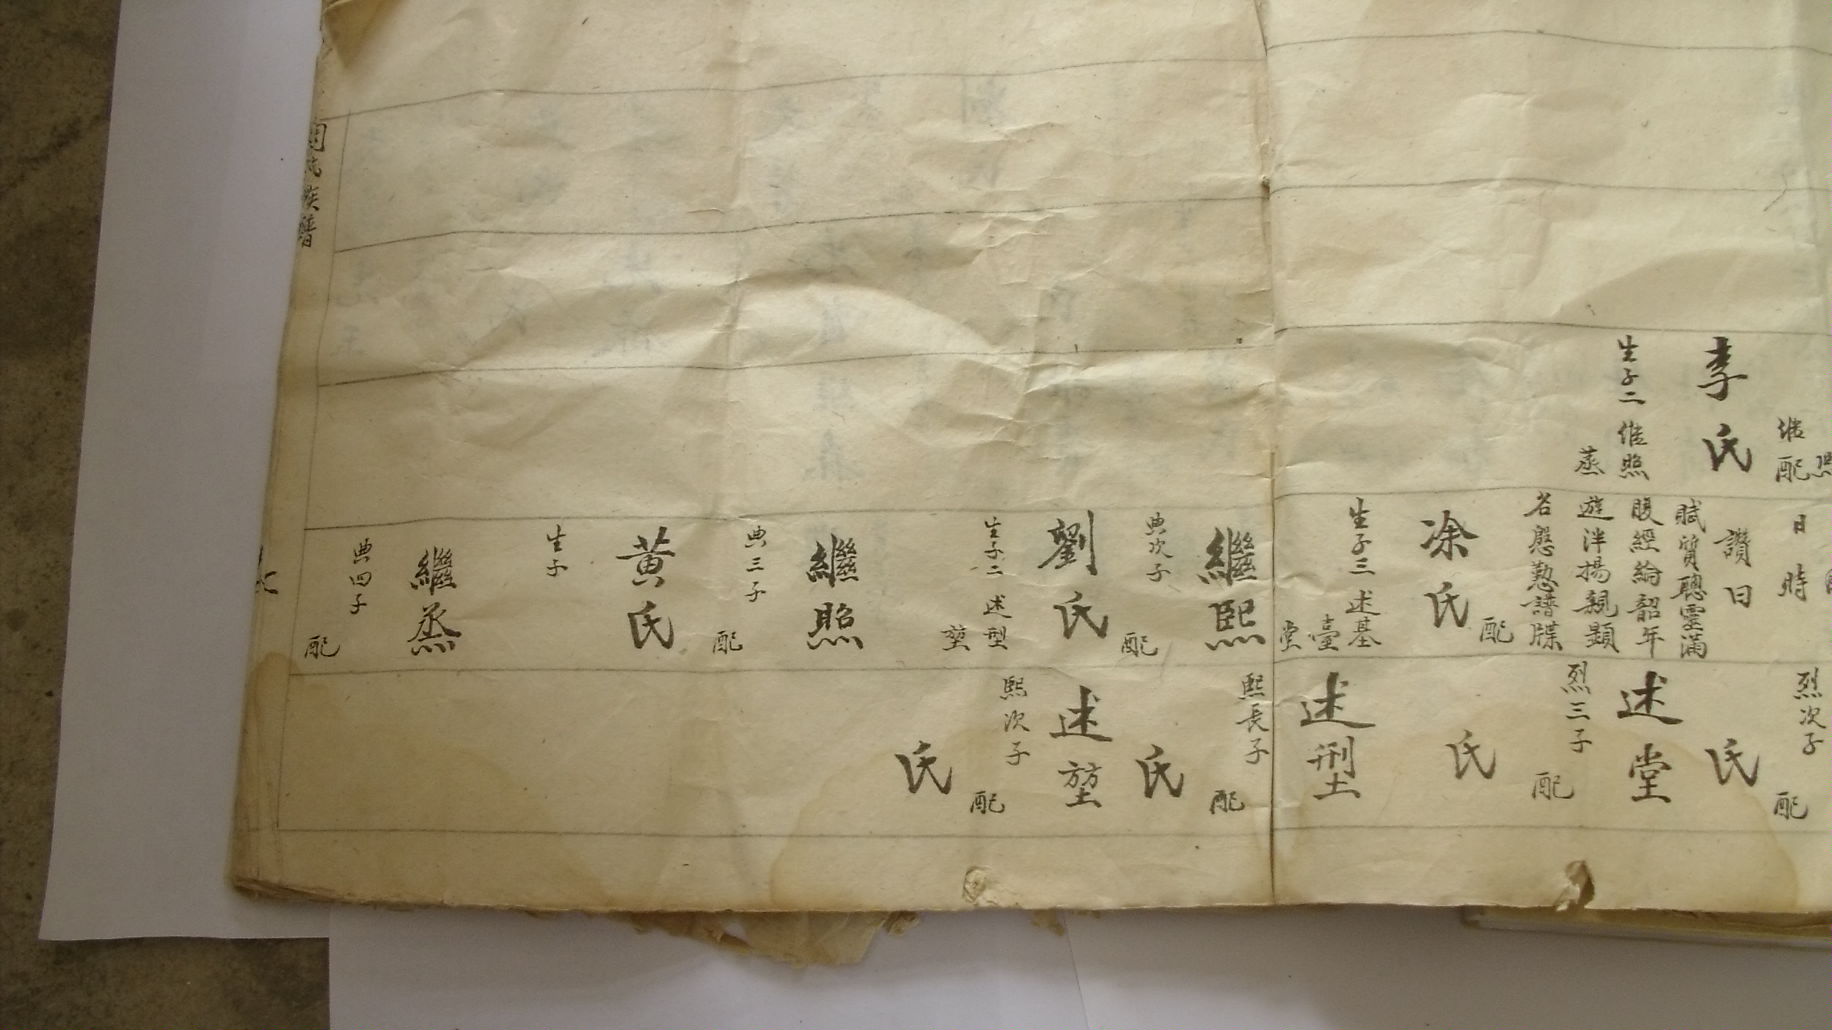 李氏
生子二 継照
蒸
継
配
日時
讚曰
賦質聰靈滿
腹經綸韶年
遊泮揚親顯
名慇懃譜牒
配
凃氏
生子三 述基
臺
堂
繼熙
典次子
配
劉氏
生子二 述型
堃
繼照
典三子
配
黄氏
生子
繼烝
典四子
配
烈次子
配
氏
述堂
烈三子
配
氏
述型
熙長子
配
氏
述堃
熙次子
配
氏
族譜